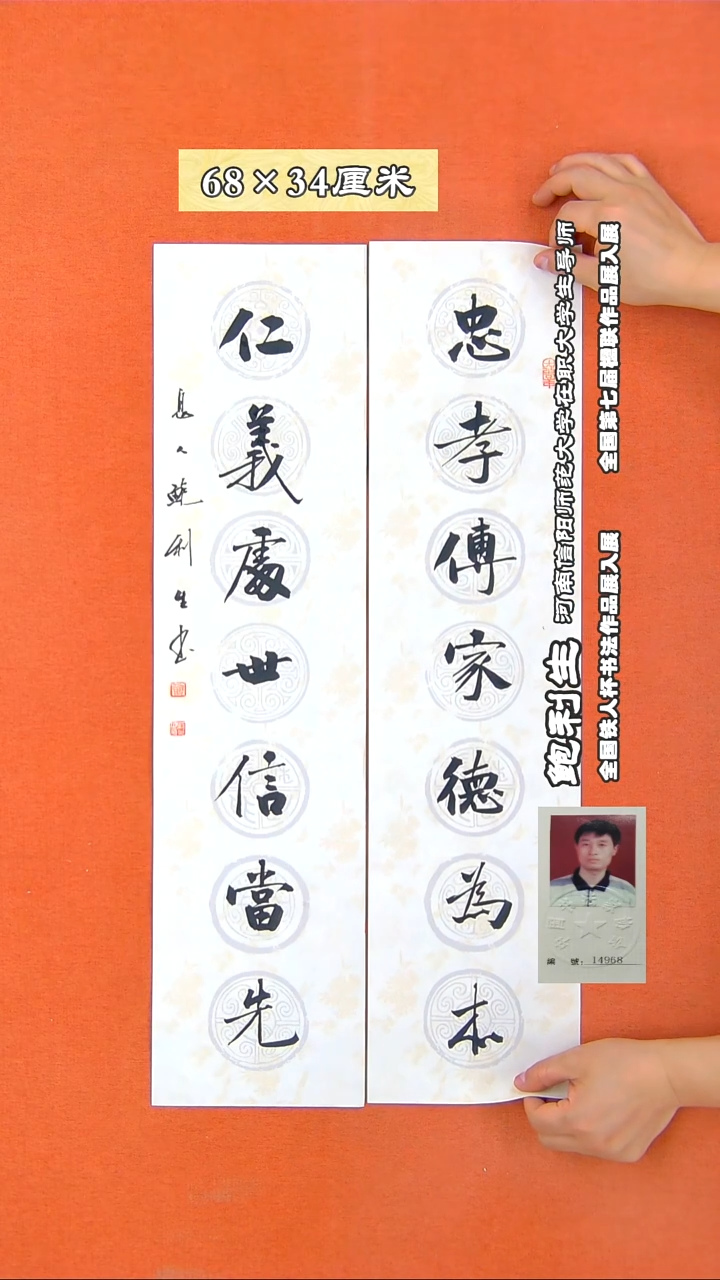 68×34厘米
忠孝傳家德為本
仁義處世信當先
息人鲍利生书
鲍利生
河南信阳师范大学在职大学生导师
全国第七届楹联作品展入展
全国铁人杯书法作品展入展
编 號: 14968